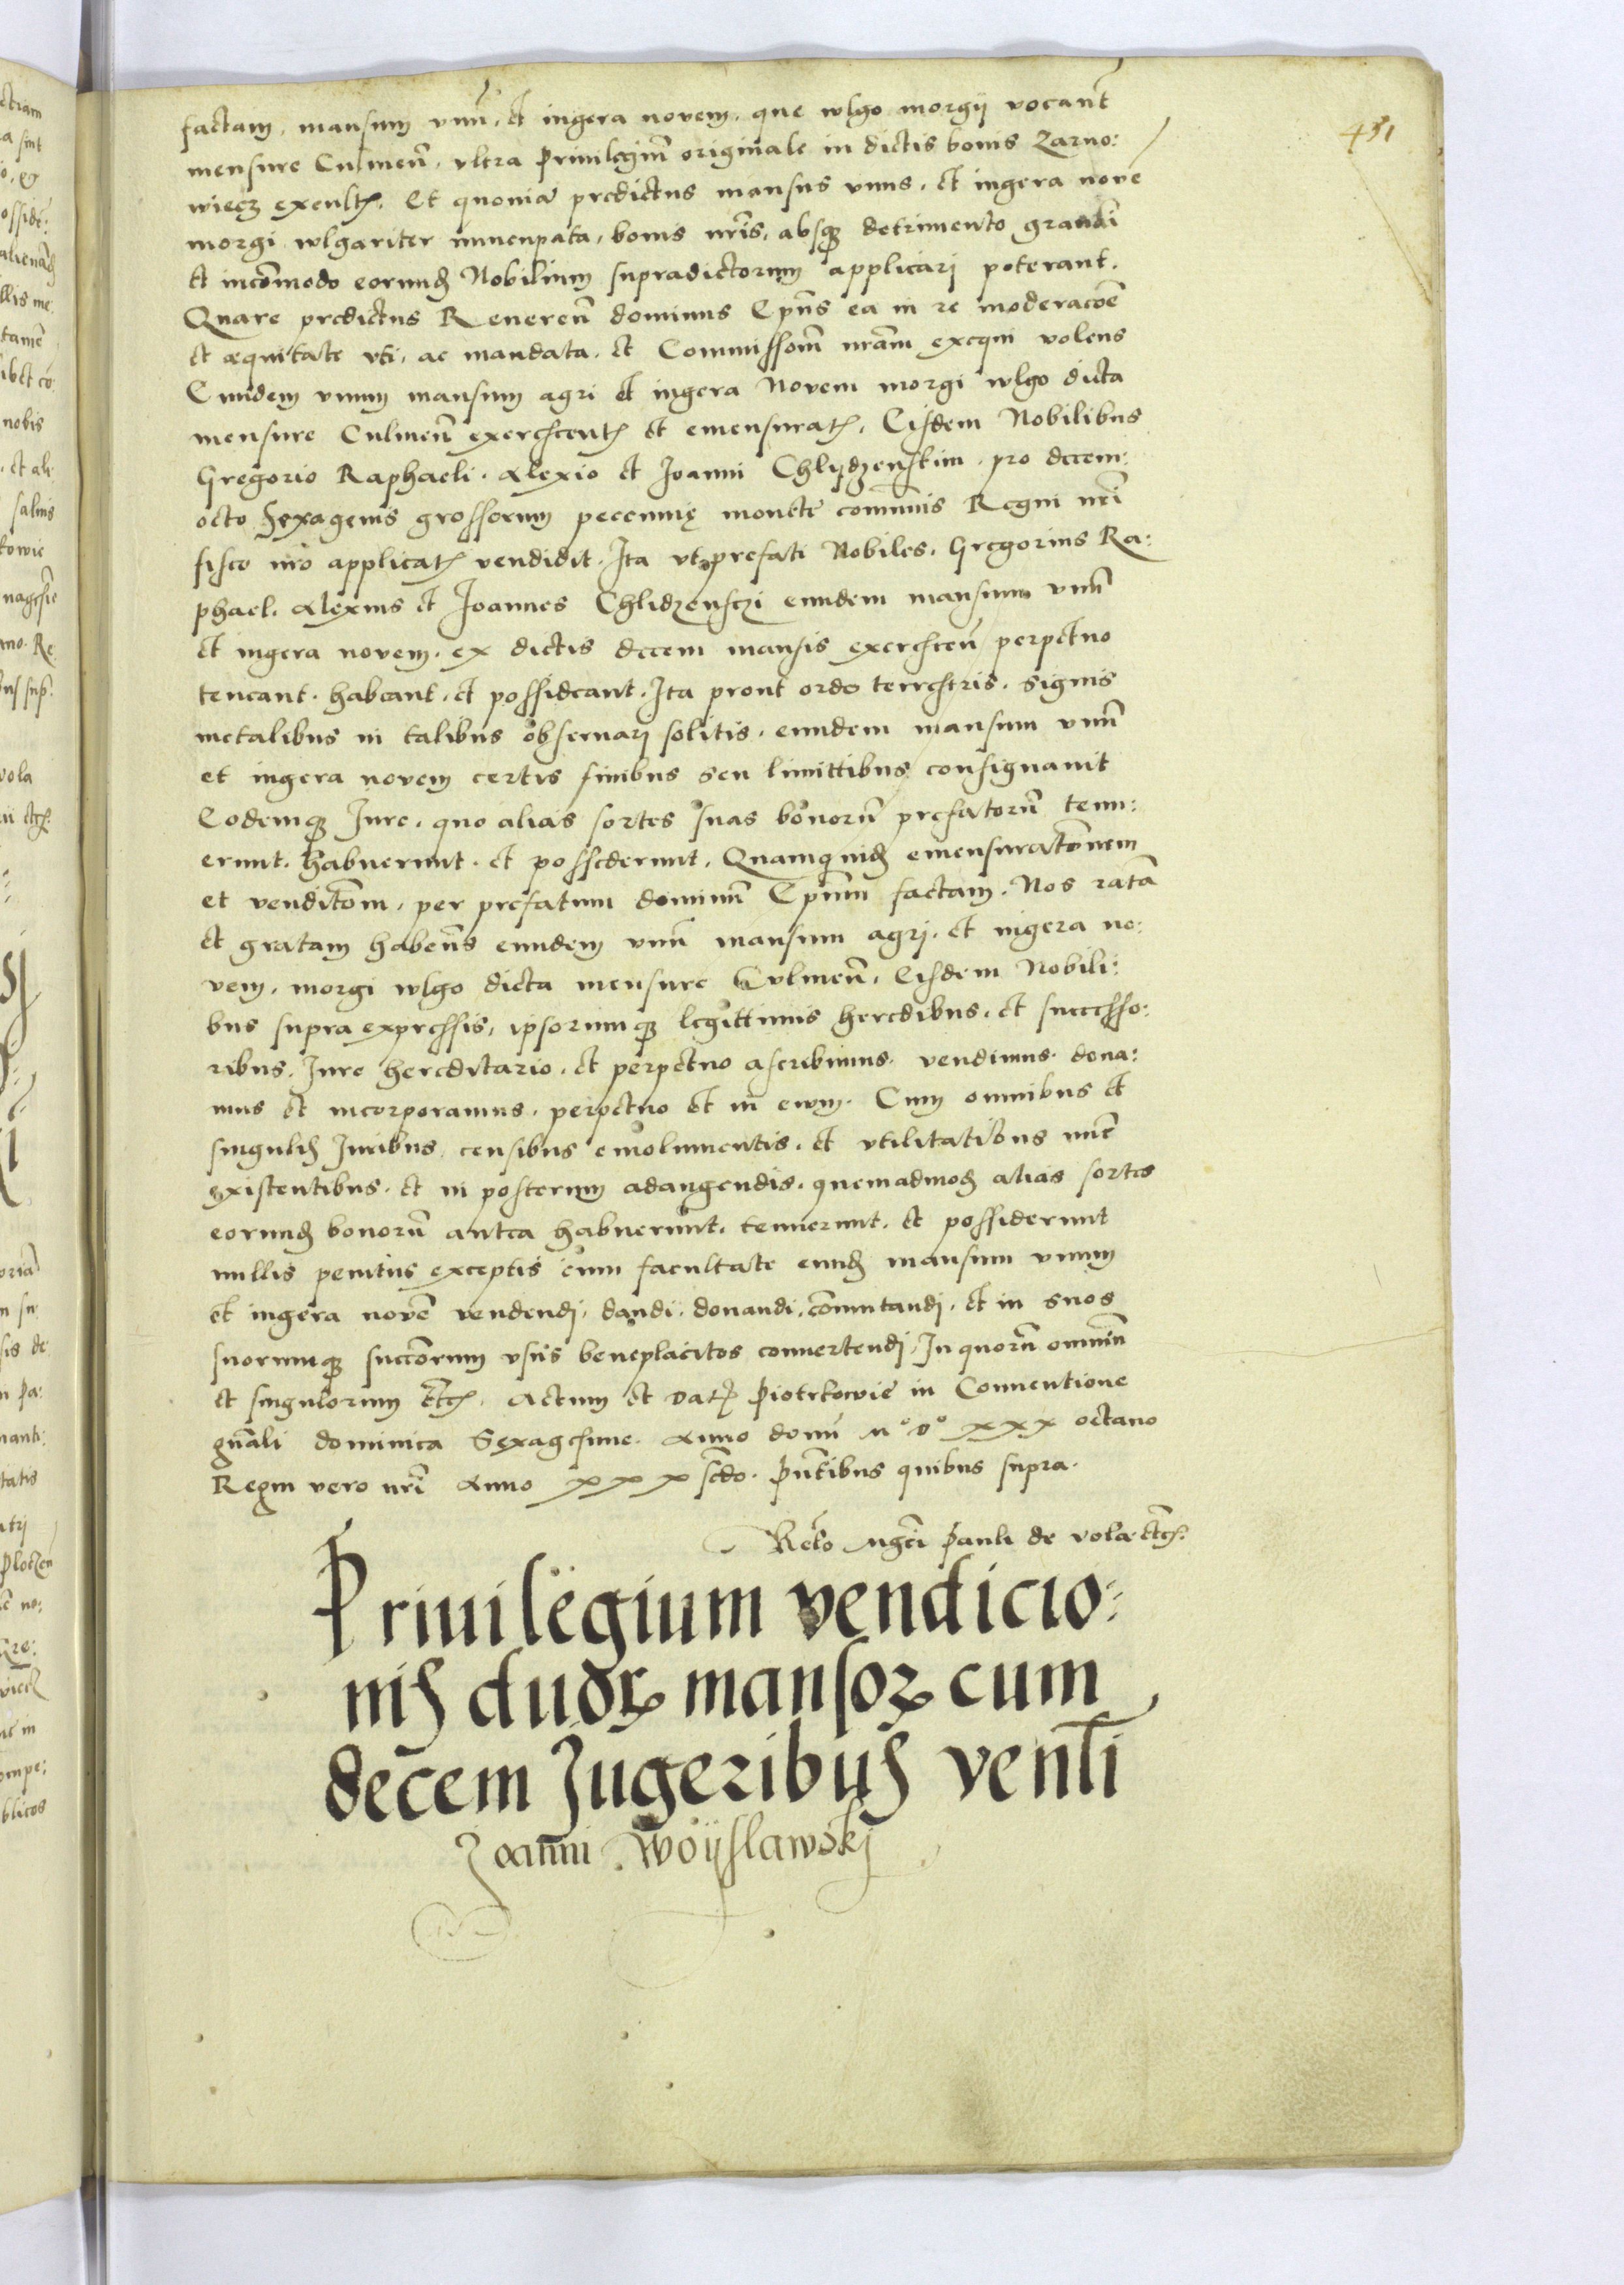 431
factam, mansum vnũ, et iugera novem, que wlgo morgij vocant̃
mensure Culmeñ, vltra Priuilegiũ originale in dictis bonis Zarno:
wiecz
Et quoniã predictus mansus vnus, et iugera novẽ
morgi wlgariter nuncupata, bonis nr̃is, absq̃ detrimento grandi
et incõmodo eorund̃ Nobilium supradictorum applicari poterant.
Quare predictus Reuereñ dominus Ep̃us ea in re moderacõe
et æquitate vti, ac mandata, et Commissiom̃ nrãm exequi volens
Eundem vnum mansum agri et iugera Novem morgi wlgo dicta
mensure Culmeñ excrescent̃ et emensurat̃, Eisdem Nobilibus
Gregorio Raphaeli. Alexio et Joanni Chlydzenskim. pro decem:
octo sexagenis grossorum pecunnię monete com̃unis Regni nr̃i
fisco nr̃o applicat̃ vendidit. Ita vt prefati Nobiles. Gregorius Ra:
phael. Alexius et Joannes Chlidzensczi eundem mansum vnũ
et iugera novem. ex dictis decem mansis excresceñ perpetuo
teneant. habeant. et possideant. Ita prout ordo terrestris. signis
metalibus in talibus obseruarj solitis. eundem mansum vnũ
et iugera novem certis finibus seu limittibus consignauit
Eodemq̃ Jure. quo alias sortes suas bonorũ prefatorũ tenu:
erunt. habuerunt. et possederunt. Quamquid̃ emensuratõnem
et venditõm, per prefatum dominũ Ep̃um factam. Nos ratã
et gratam habeñs eundem vnũ mansum agrj. et iugera no:
vem, morgi wlgo dicta mensure Culmeñ. Eisdem Nobili:
bus supra expressis, ipsorumq̃ legittimis heredibus. et successo:
ribus. Jure hereditario. et perpetuo ascribimus. vendimus. dona:
mus et incorporamus. perpetuo et in ewm. Cum omnibus et
singulis Juribus. censibus emolumentis. et vtilitatibus nũc
existentibus. et in posterum adaugendis. quemadmod̃ alias sortes
eorund̃ bonorũ antea habuerunt. tenuerunt. et possiderunt
nullis penitus exceptis cum facultate eund̃ mansum vnum
et iugera novẽ vendendj, dandi. donandi. com̃utandj. et in suos
suorumq̃ succõrum vsus beneplacitos conuertendj. In quorũ omniũ
et singulorum etc̃. Actum et dat̃ Piotrkowie in Conuentione
gnãli dominica Sexagesime. Anno domi M° D° XXX octauo
Regni vero nr̃i Anno XXX scdo. Pñtibus quibus supra.
Rel̃o Mgc̃i Pauli de vola etc̃.
Priuilegium vendicio:
nis duor̃ mansor̃ cum
decem Jugeribus venl̃i
Joanni Woijslawskj